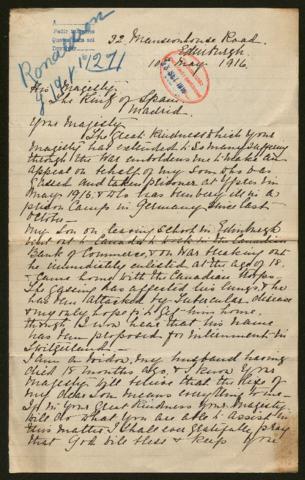 Ronaldson
9 1841 10/271
32 Mansionhouse Road
Edinburgh
10th May. 1916.
His Majesty
The King of Spain
Madrid.
Your Majesty
The Great Kindness which your
Majesty has extended to so many suffering
through the War emboldens me to make an
appeal on behalf of my Son who was
Gassed and taken prisoner at Ypres in
May 1915, & who has been very ill in a
prison Camp in Germany since last
October
My Son on leaving School in Edinburgh
went out to Canada to work in the Canadian
Bank of Commerce, & on War breaking out
he immediately enlisted at the age of 18.
Came home with the Canadian troops.
The gassing has affected his lungs, & he
has been attacked by Tubercular disease
& my only hope is to get him home.
though I now hear that his name
has been proposed for internment in
Switzerland
I am a widow, my husband having
died 18 months ago, & I know Your
Majesty will believe that the life of
my dear Son means everything to me
If in Your Great Kindness Your Majesty
will do what You are able to assist in
this matter I shall ever gratefully pray
that God will bless & keep You